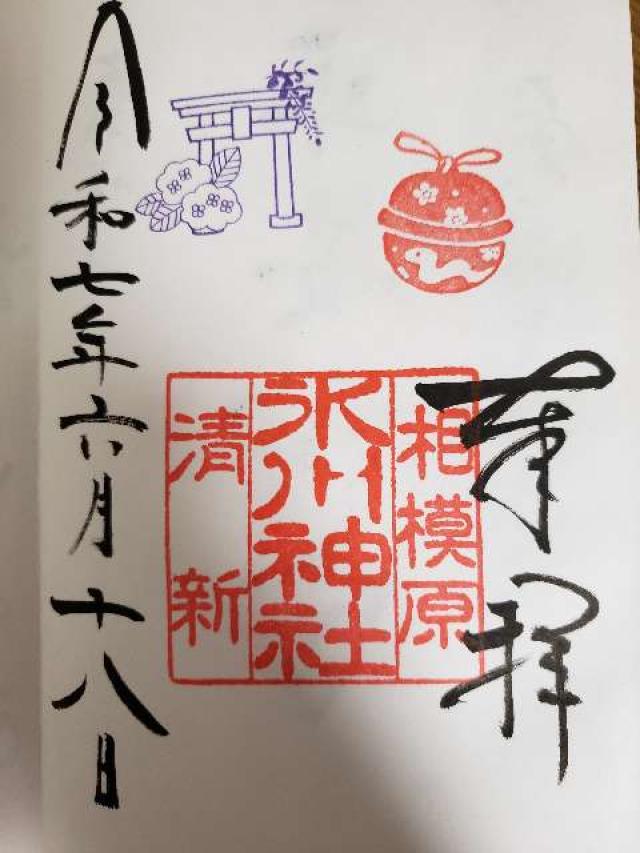 奉拝
相模原
氷川神社
清新
令和七年六月十八日